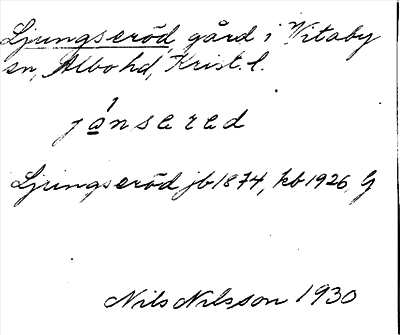 Ljungseröd, gård i Vitaby
sn, Albo hd, Krist. l.
jånsered
Ljungseröd jb 1874, kb 1926, G
Nils Nilsson 1930